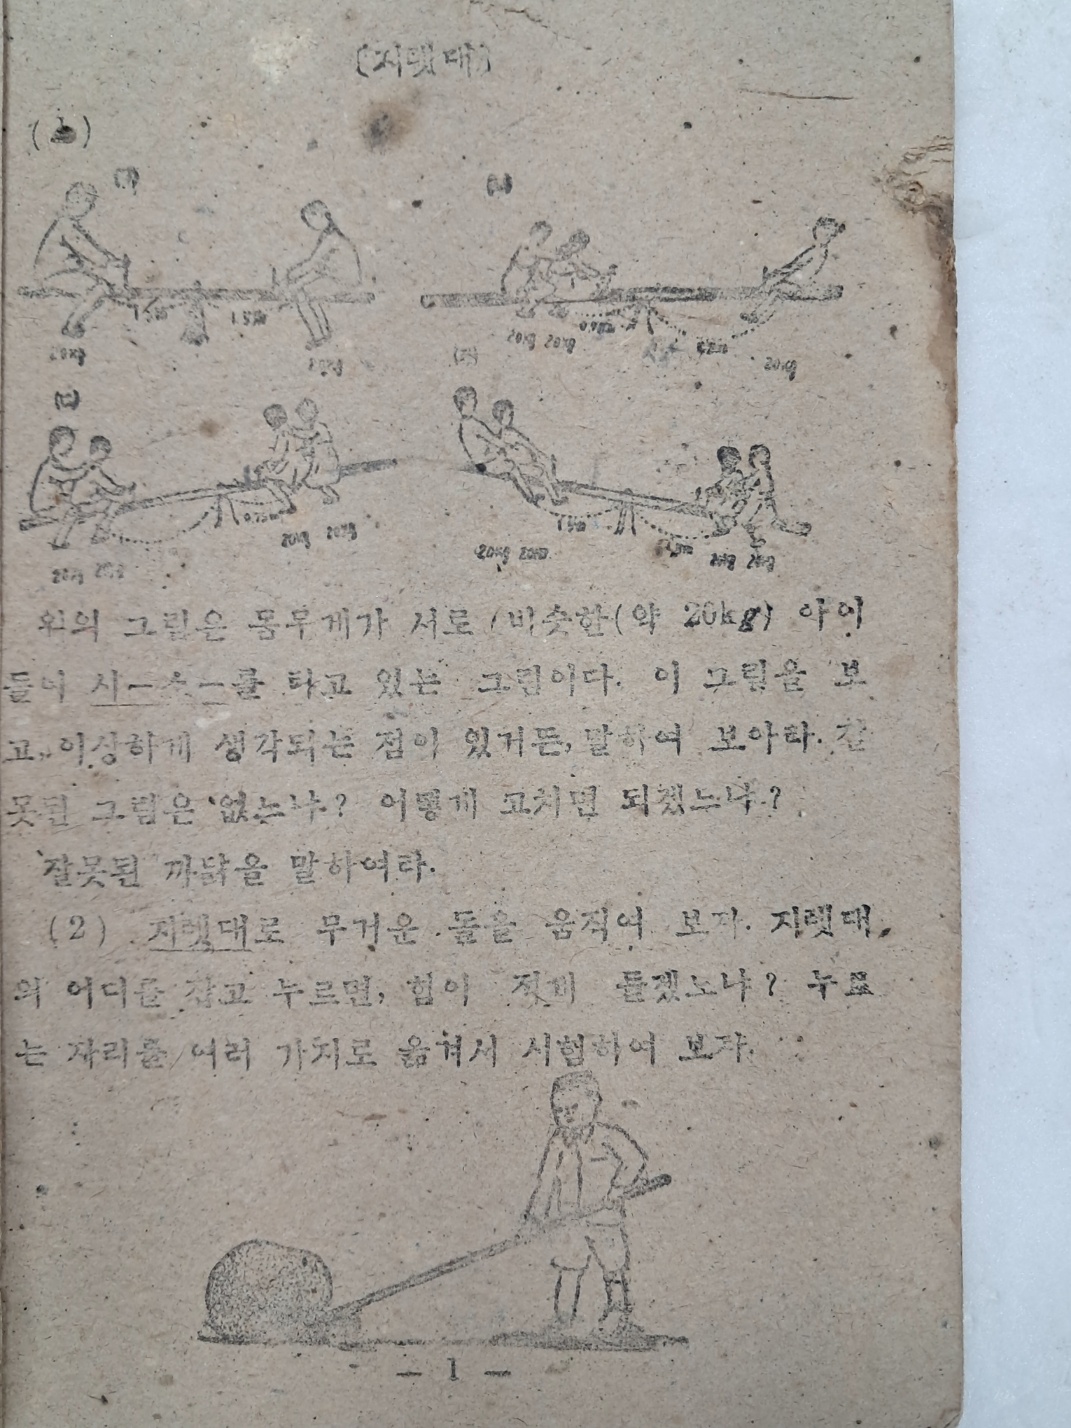 (지렛대)
1.5m 1.5m
20kg 20kg
20kg 20kg 20kg
0.75m
20kg 20kg
20kg 20kg
1.5m
20kg 20kg 20kg 20kg
위의 그림은 몸무게가 서로 비슷한(약 20kg) 아이
들이 시—소—를 타고 있는 그림이다. 이 그림을 보
고, 이상하게 생각되는 점이 있거든, 말하여 보아라. 잘
못된 그림은 없느냐? 어떻게 고치면 되겠느냐?
잘못된 까닭을 말하여라.
(2) 지렛대로 무거운 돌을 움직여 보자. 지렛대
의 어디를 잡고 누르면, 힘이 적게 들겠느냐? 누르
는 자리를 여러 가지로 옮겨서 시험하여 보자.
— 1 —